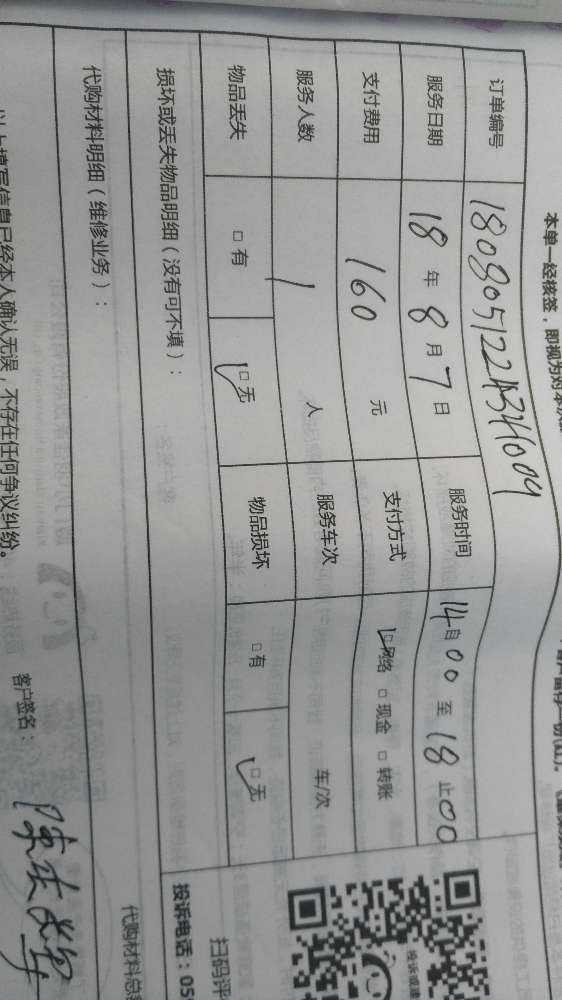 本单一经核签，即视为对本次
订单编号 180805122434009
服务日期 18 年 8 月 7 日 服务时间 14 自 00 至 18 止 00
支付费用 160 元 支付方式 □网络 □现金 □转账
服务人数 1 人 服务车次 车/次
物品丢失 □有 □无 物品损坏 □有 □无
损坏或丢失物品明细（没有可不填）：
代购材料明细（维修业务）：
代购材料总
以上填写信息已经本人确认无误，不存在任何争议纠纷。
客户签名：
扫码评
投诉电话：05